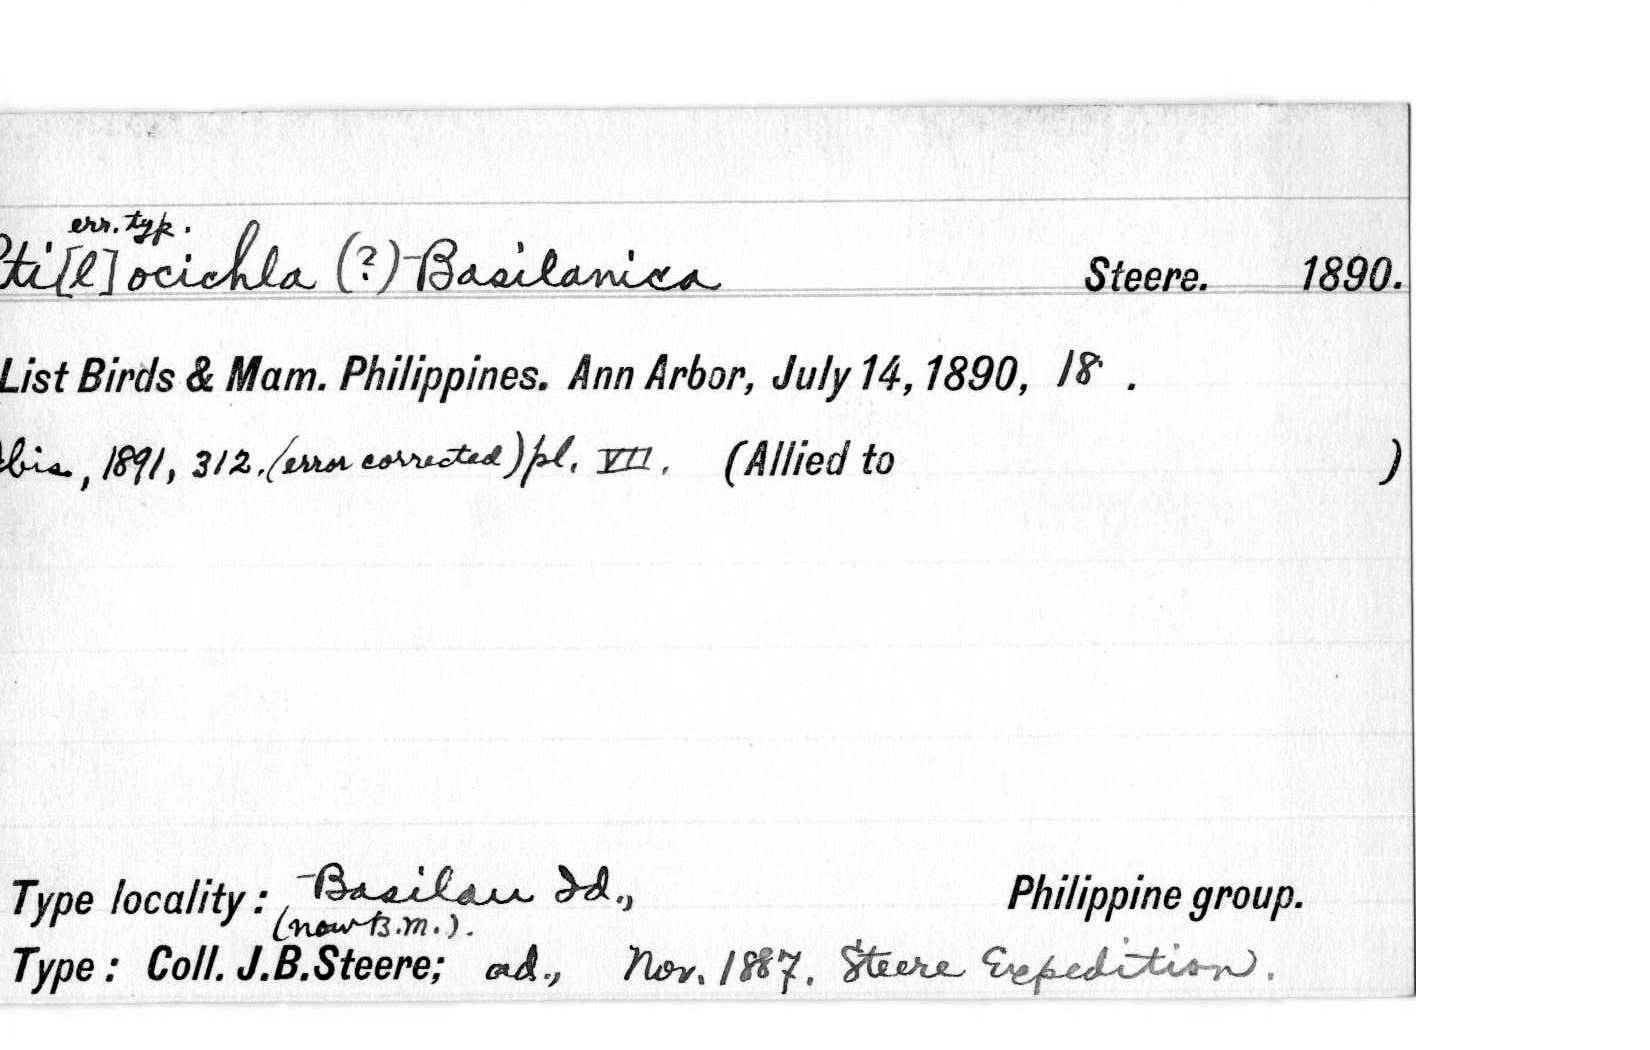 err. typ.
Pti[l]ocichla (?) Basilanica Steere. 1890.
List Birds & Mam. Philippines. Ann Arbor, July 14, 1890, 18 .
Ibis, 1891, 312. (error corrected) pl. VII. (Allied to )
Type locality: Basilan Id., Philippine group.
(now B.M.).
Type: Coll. J.B.Steere; ad., Nov. 1887. Steere Expedition.